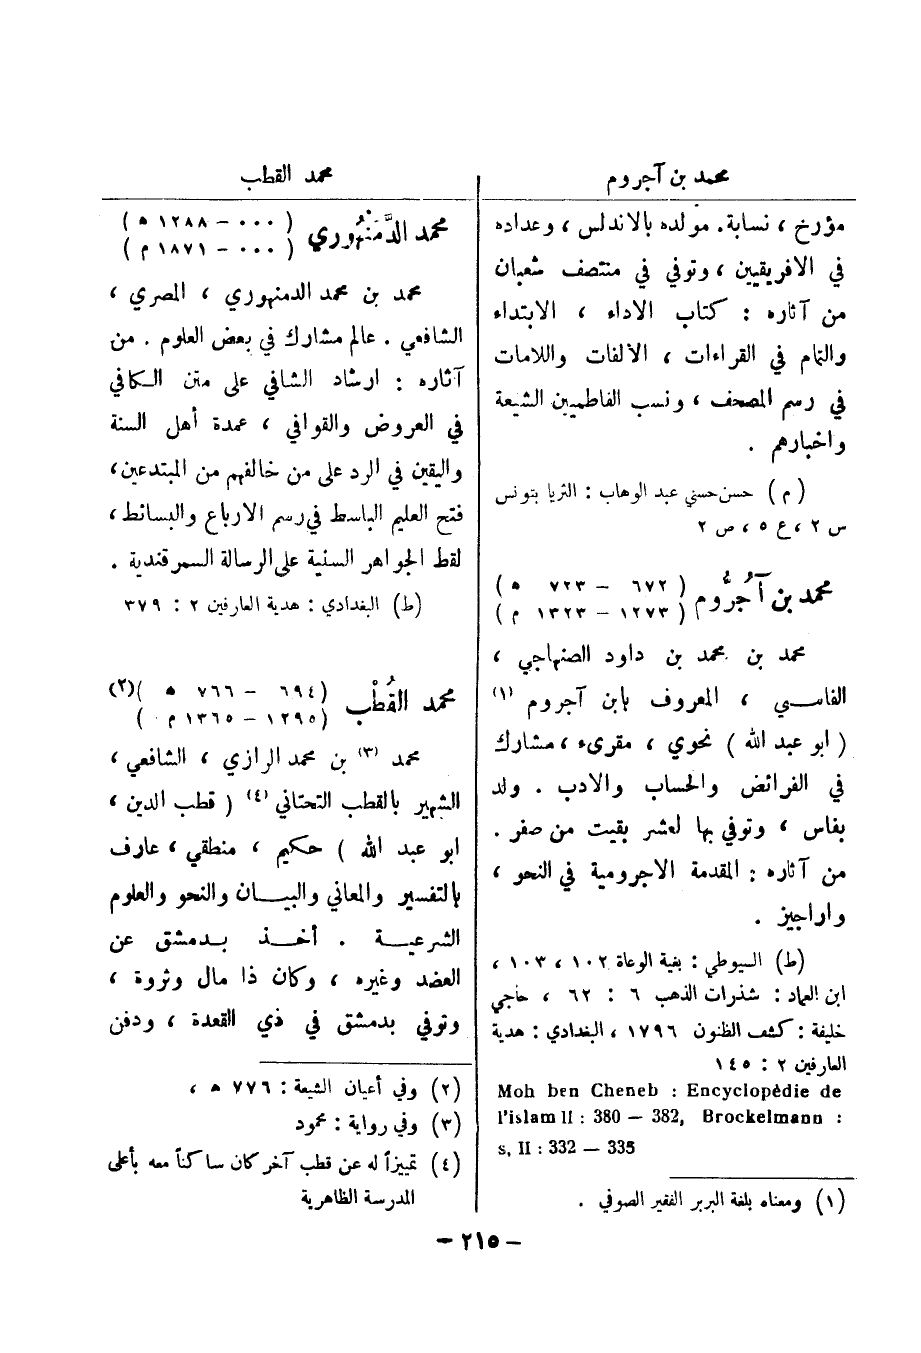 محمد بن آجروم
مؤرخ ، نسابة. مولده بالاندلس ، وعداده
في الافريقيين ، وتوفي في منتصف شعبان
من آثاره : كتاب الاداء ، الابتداء
والتمام في القراءات ، الألفات واللامات
في رسم المصحف ، ونسب الفاطميين الشيعة
واخبارهم .
( م ) حسن حسني عبد الوهاب : الثريا بتونس
س ٢ ، ع ٥ ، ص ٢
محمد بن آجُرُّوم ( ٦٧٢ – ٧٢٣ ه )
( ١٢٧٣ – ١٣٢٣ م )
محمد بن محمد بن داود الصنهاجي ،
الفاسي ، المعروف بابن آجروم (١)
( ابو عبد الله ) نحوي ، مقرىء ، مشارك
في الفرائض والحساب والادب . ولد
بفاس ، وتوفي بها لعشر بقيت من صفر .
من آثاره : المقدمة الاجرومية في النحو ،
واراجيز .
(ط) السيوطي : بغية الوعاة ١٠٢ ، ١٠٣ ،
ابن العماد : شذرات الذهب ٦ : ٦٢ ، حاجي
خليفة : كشف الظنون ١٧٩٦ ، البغدادي : هدية
العارفين ٢ : ١٤٥
Moh ben Cheneb : Encyclopédie de
l'islam II : 380 — 382, Brockelmann :
s, II : 332 — 335
(١) ومعناه بلغة البربر الفقير الصوفي .
محمد القطب
محمد الدَّمَنْهُوري ( ٠٠٠ – ١٢٨٨ ه )
( ٠٠٠ – ١٨٧١ م )
محمد بن محمد الدمنهوري ، المصري ،
الشافعي . عالم مشارك في بعض العلوم . من
آثاره : ارشاد الشافي على متن الكافي
في العروض والقوافي ، عمدة أهل السنة
واليقين في الرد على من خالفهم من المبتدعين،
فتح العليم الباسط في رسم الارباع والبسائط ،
لقط الجواهر السنية على الرسالة السمرقندية .
(ط) البغدادي : هدية العارفين ٢ : ٣٧٩
محمد القُطْب (٦٩٤ – ٧٦٦ ه )(٢)
(١٢٩٥ – ١٣٦٥ م )
محمد (٣) بن محمد الرازي ، الشافعي ،
الشهير بالقطب التحتاني (٤) ( قطب الدين ،
ابو عبد الله ) حكيم ، منطقي ، عارف
بالتفسير والمعاني والبيان والنحو والعلوم
الشرعية . أخذ بدمشق عن
العضد وغيره ، وكان ذا مال وثروة ،
وتوفي بدمشق في ذي القعدة ، ودفن
(٢) وفي أعيان الشيعة : ٧٧٦ ه ،
(٣) وفي رواية : محمود
(٤) تمييزاً له عن قطب آخر كان ساكناً معه بأعلى
المدرسة الظاهرية
– ٢١٥ –